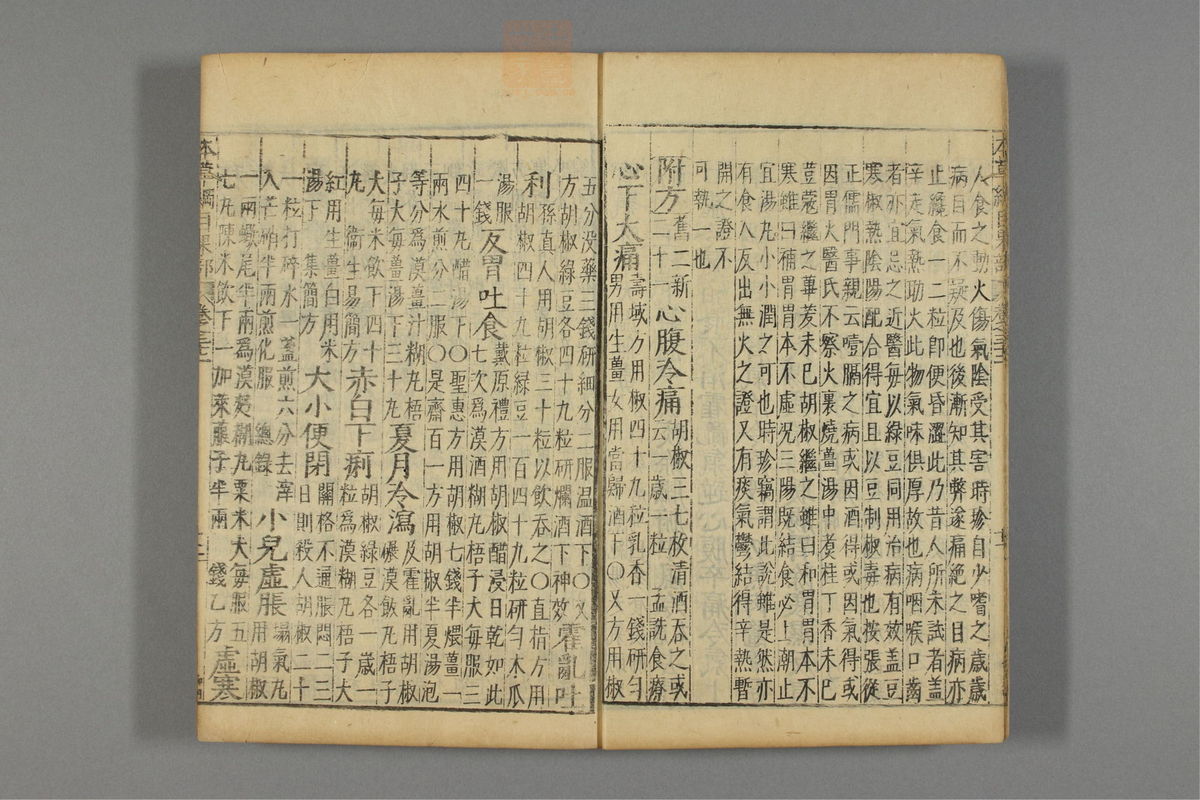 人食之動火傷氣陰受其害時珍自少嗜之歲歲
病目而不疑及也後漸知其弊遂痛絕之目病亦
止纔食一二粒即便昏澀此乃昔人所未試者蓋
辛走氣熱助火此物氣味俱厚故也病咽喉口齒
者亦宜忌之近醫每以綠豆同用治病有效蓋豆
寒椒熱陰陽配合得宜且以豆制椒毒也按張從
正儒門事親云噎膈之病或因酒得或因氣得或
因胃火醫氏不察火裏燒薑湯中煮桂丁香未已
荳蔻繼之蓽茇未已胡椒繼之雖曰和胃胃本不
寒雖曰補胃胃本不虛況三陽既結食必上潮止
宜湯丸小小潤之可也時珍竊謂此說雖是然亦
有食入反出無火之證又有痰氣鬱結得辛熱暫
開之證不
可執一也
附方舊二新二十一心腹冷痛胡椒三七枚清酒吞之或云一歲一粒孟詵食療
心下大痛壽域方用椒四十九粒乳香一錢研勻男用生薑女用當歸酒下〇又方用椒
五分没藥三錢研細分二服温酒下〇又
方胡椒綠豆各四十九粒研爛酒下神效霍亂吐
利孫真人用胡椒三十粒以飲吞之〇直指方用
胡椒四十九粒綠豆一百四十九粒研勻木瓜
湯服一錢反胃吐食戴原禮方用胡椒醋浸日乾如此七次爲漠酒糊丸梧子大每服三
四十丸醋湯下〇聖惠方用胡椒七錢半煨薑一
兩水煎分二服〇是齋百一方用胡椒半夏湯泡
等分爲漠薑汁糊丸梧子大每薑湯下三十丸夏月冷瀉及霍亂用胡椒碾漠飲丸梧子
大每米飲下四十丸衞生易簡方赤白下痢胡椒綠豆各一歲一粒爲漠糊丸梧子大
紅用生薑白用米湯下集簡方大小便閉關格不通脹悶二三日則殺人胡椒二十
一粒打碎水一盞煎六分去滓入芒硝半兩煎化服總錄小兒虛脹塌氣丸用胡椒
一兩蠍尾半兩爲漠麪糊丸粟米大每服五
七丸陳米飲下一加萊菔子半兩錢乙方虛寒